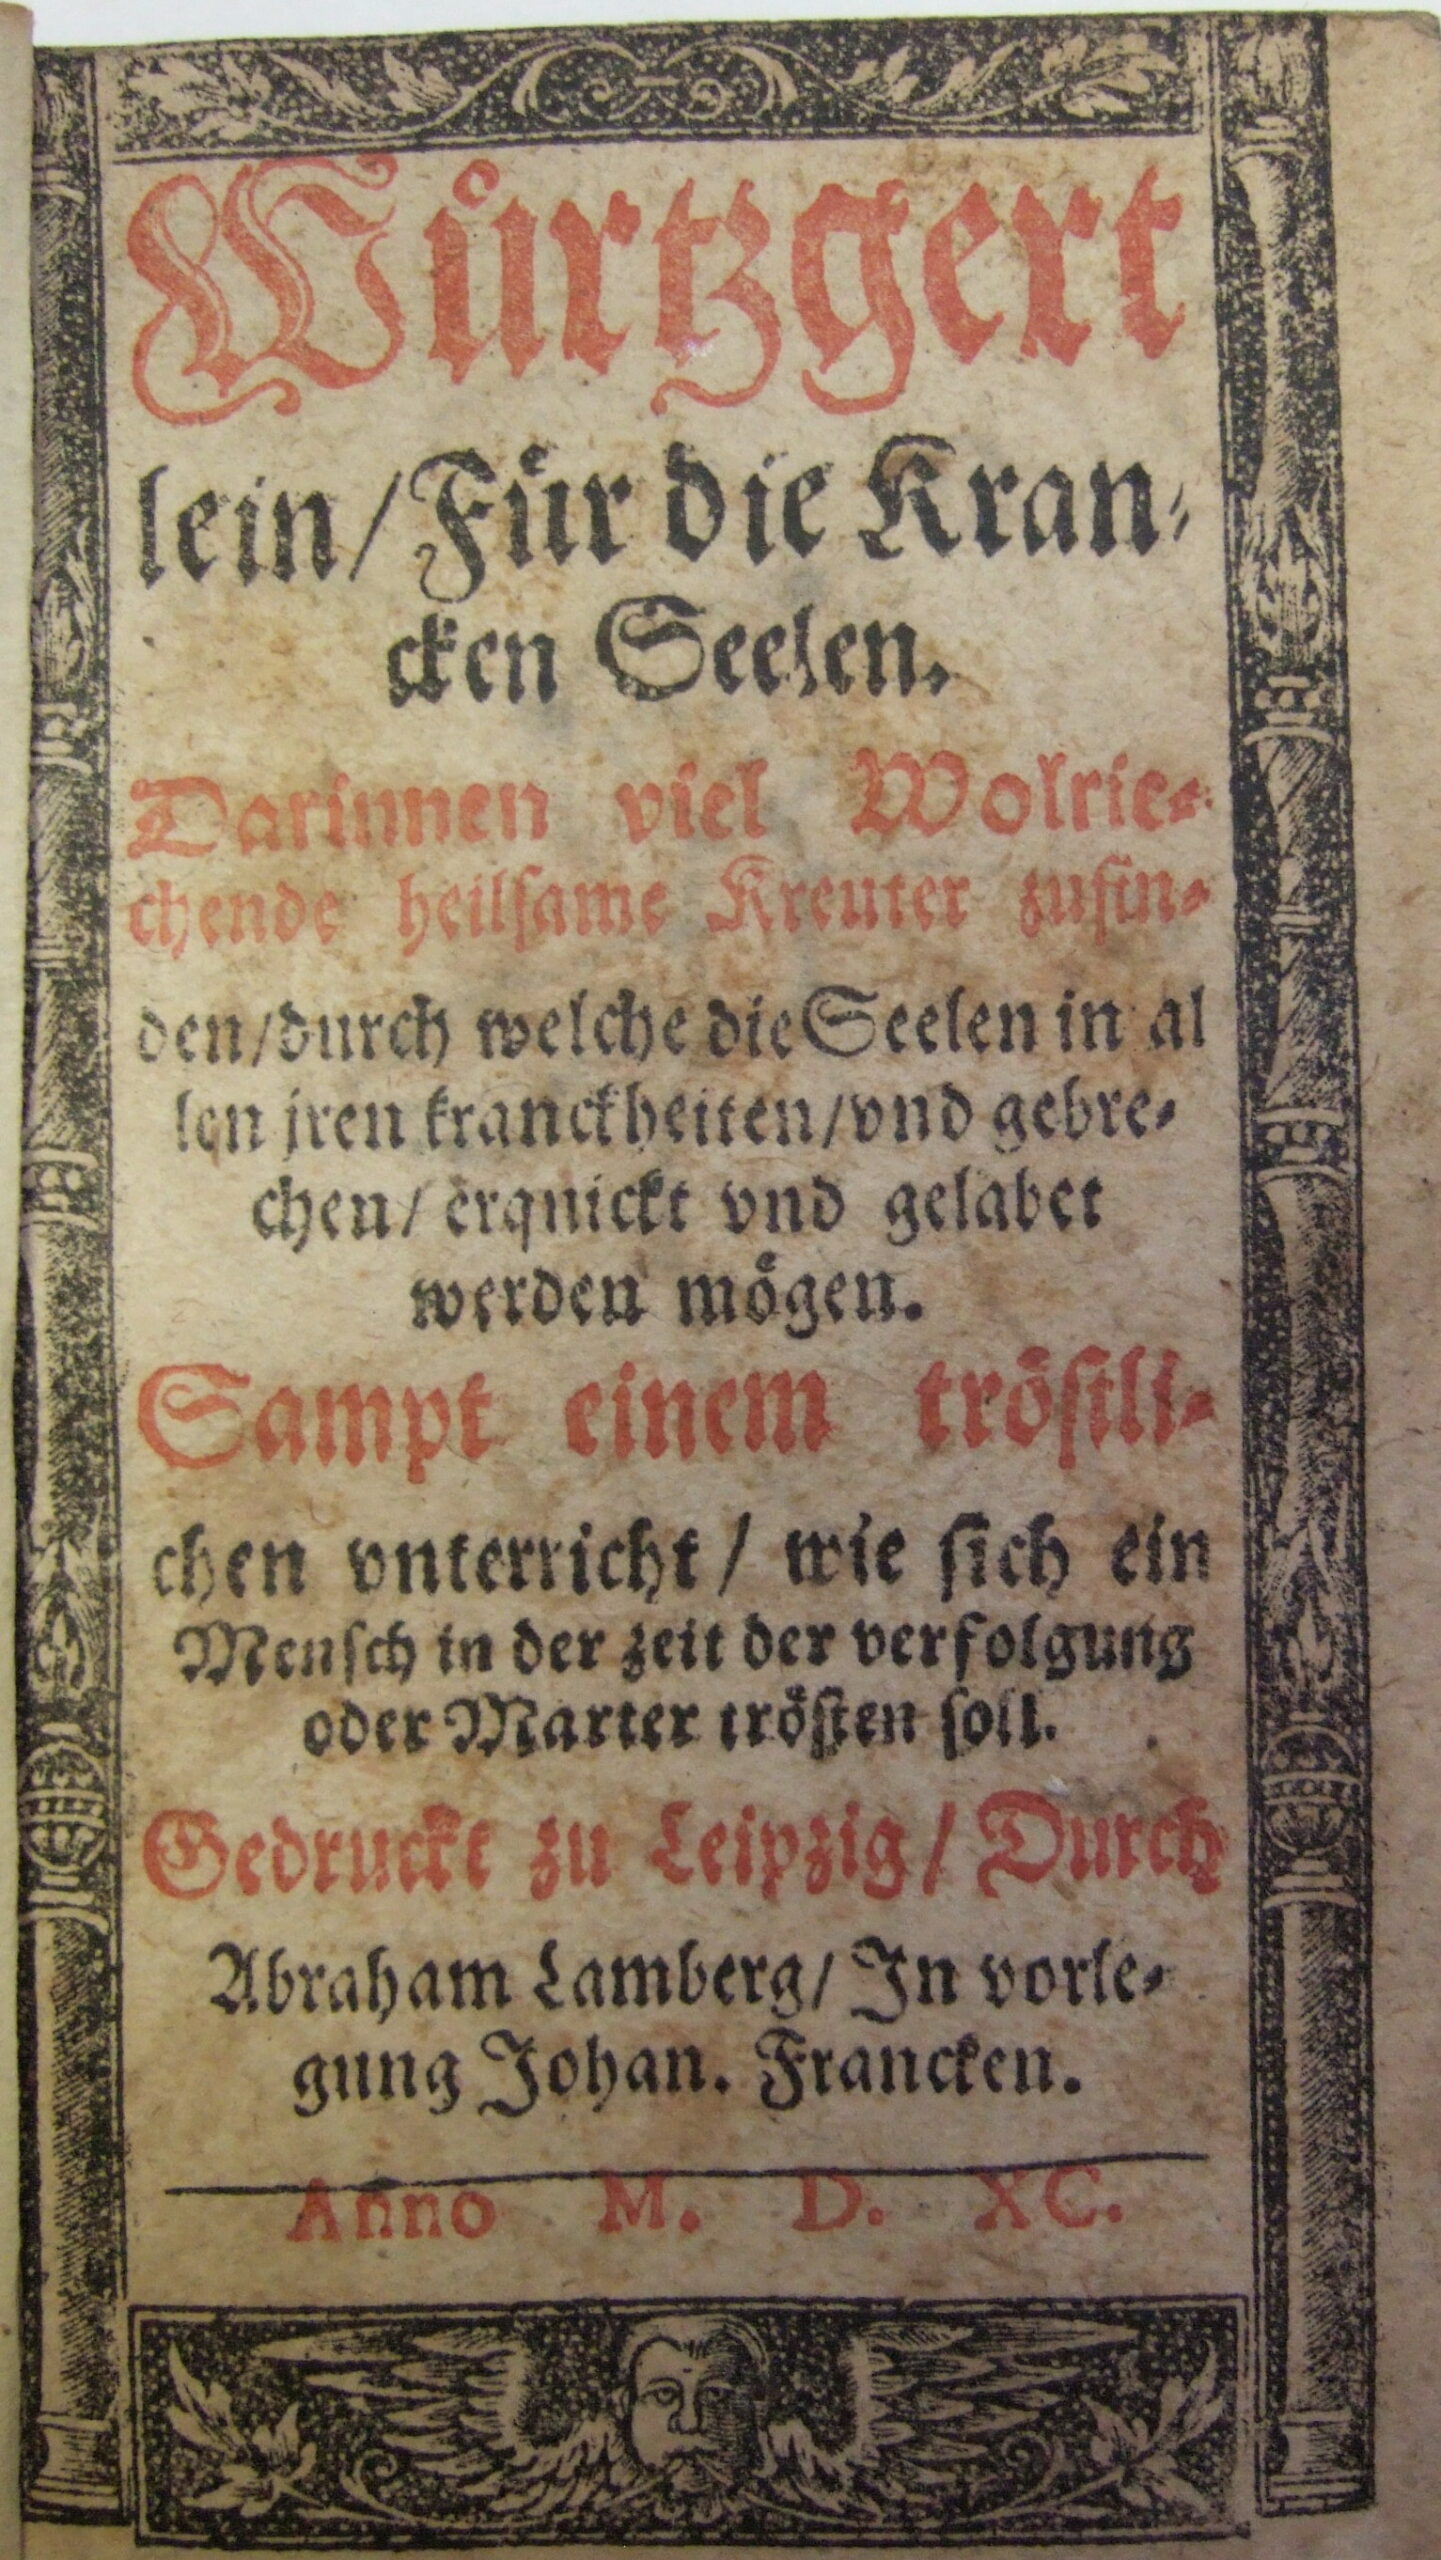 Wuͤrtzgert
lein/Fuͤr die Kran⸗
cken Seelen.
Darinnen viel Wolrie⸗
chende heilſame Kreuter zufin⸗
den/durch welche die Seelen in al
len jren kranckheiten/vnd gebre⸗
chen/ erquickt vnd gelabet
werden moͤgen.
Sampt einem troͤſtli⸗
chen vnterricht/ wie ſich ein
Menſch in der zeit der verfolgung
oder Marter troͤſten ſoll.
Gedruckt zu Leipzig/ Durch
Abraham Lamberg/ In vorle⸗
gung Johan. Francken.
Anno M. D. XC.